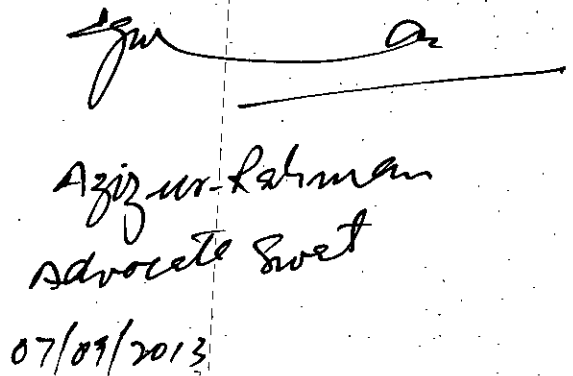 Aziz-ur-Rahman
Advocate Swat
07/09/2013